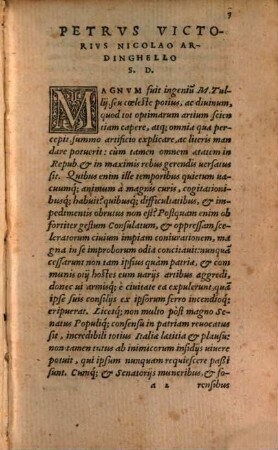 3
PETRVS VICTO-
RIVS NICOLAO AR-
DINGHELLO
S. D.
MAGNVM fuit ingeniũ M. Tul-
lij, seu cœleste potius, ac diuinum,
quod tot optimarum artium scien-
tiam capere, atq; omnia quæ per-
cepit summo artificio explicare, ac literis man
dare potuerit: cùm tamen omnem ætatem in
Repub. & in maximis rebus gerendis uersatus
sit. Quibus enim ille temporibus quietum ua-
cuumq; animum à magnis curis, cogitationi-
busq; habuit? quibusq; difficultatibus, & im-
pedimentis obrutus non est? Postquam enim ob
fortiter gestum Consulatum, & oppressam sce-
leratorum ciuium impiam coniurationem, ma
gna in se improborum odia concitauit: nunquã
cessarunt non tam ipsius quàm patriæ, & com
munis ocij hostes eum uarijs artibus aggredi,
donec ui armisq; è ciuitate ea expulerunt, quã
ipse suis consilijs ex ipsorum ferro incendioq;
eripuerat. Licetq; non multo pòst magno Se-
natus Populiq; consensu in patriam reuocatus
sit, incredibili totius Italiæ lætitia & plausu:
non tamen tutus ab inimicorum insidijs uiuere
potuit, qui ipsum nunquam requiescere passi
sunt. Cumq; & Senatorijs muneribus, & fo-
a 2 rensibus